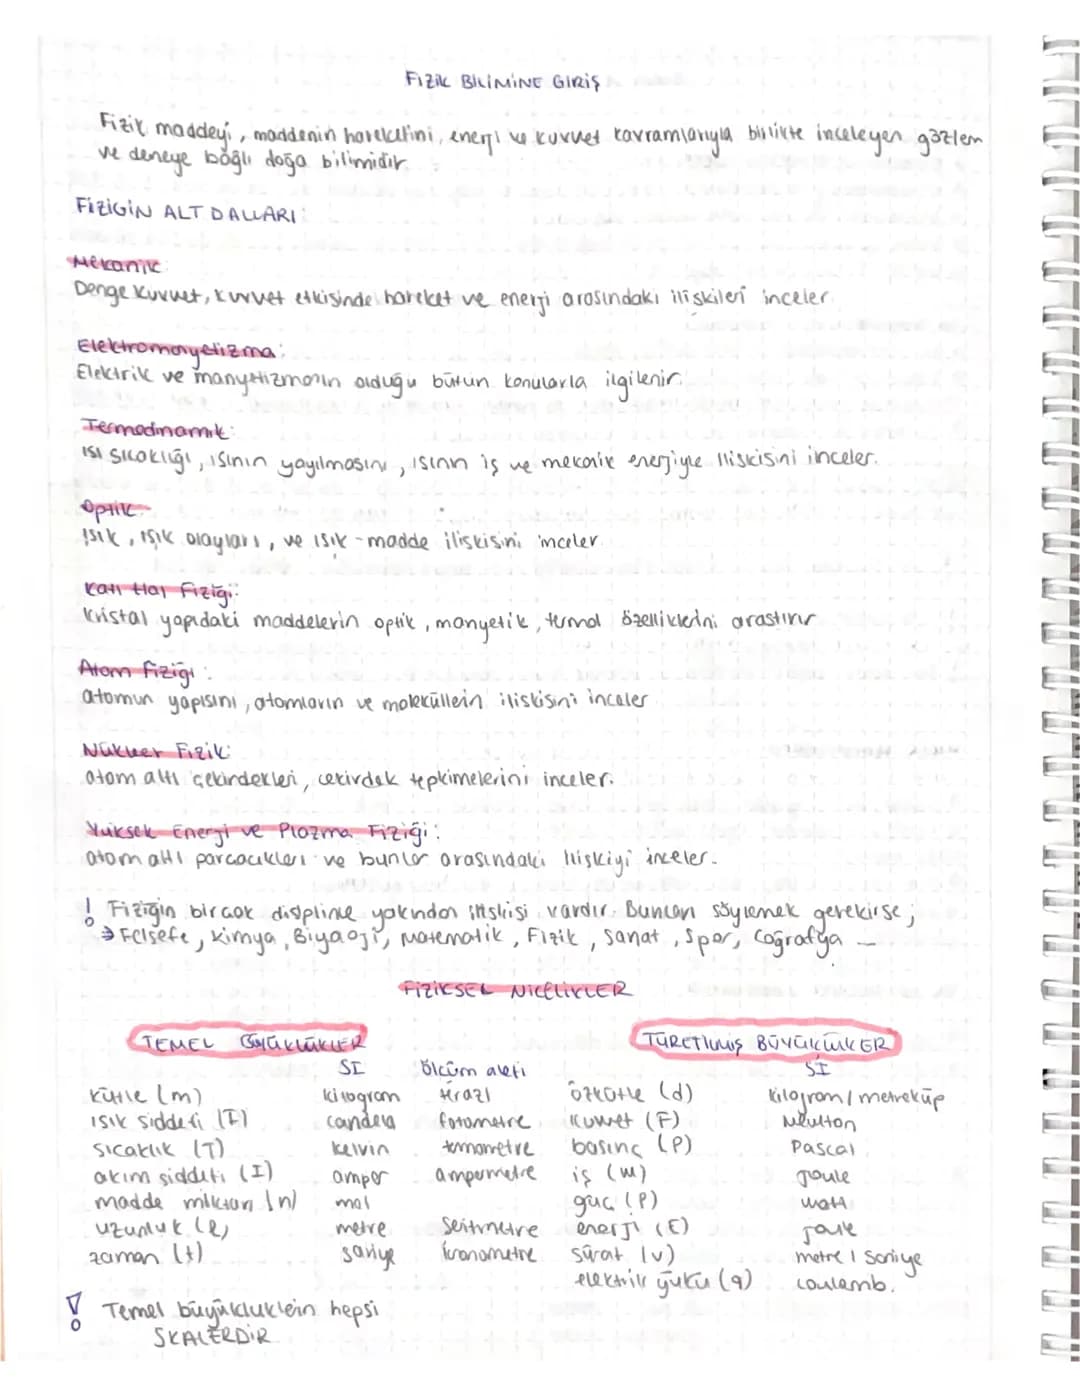 FİZİK BİLİMİNE GİRİŞ
Fizik maddeyi, maddenin hareketini, enerji ve kuvvet kavramlarıyla birlikte inceleyen gözlem
ve deneye bağlı doğa bilimidir.
FİZİĞİN ALT DALLARI:
Mekanik:
Denge Kuvvet, kuvvet etkisinde hareket ve enerji arasındaki ilişkileri inceler.
Elektromanyetizma:
Elektrik ve manyetizmanın olduğu bütün konularla ilgilenir.
Termodinamik:
ısı sıcaklığı, ısının yayılmasını, ısının iş ve mekanik enerjiyle ilişkisini inceler.
Optik:
Işık, ışık olayları, ve ışık-madde ilişkisini inceler.
Katı Hal Fiziği:
Kristal yapıdaki maddelerin optik, manyetik, termal özelliklerini araştırır
Atom Fiziği:
atomun yapısını, atomların ve moleküllein ilişkisini inceler
Nükleer Fizik:
atom altı çekirdekleri, cekirdek tepkimelerini inceler.
Yüksek Enerji ve Plazma Fiziği:
atom altı parcacıkları ve bunlar arasındaki ilişkiyi inceler.
! Fiziğin bircok displine yakından ilişkisi vardır. Bunları söylemek gerekirse;
→ Felsefe, Kimya, Biyaoji, Matematik, Fizik, Sanat, Spor, Coğrafya
FİZİKSEL NİCELİKLER
TEMEL BÜYÜKLÜKLER TÜRETİLMİŞ BÜYÜKLÜKLER
SI Ölcüm aleti SI
kütle (m) kilogram terazi özkütle (d) kilogram/metreküp
ışık siddeti (I) candela fotometre kuvvet (F) Newton
sıcaklık (T) kelvin termometre basınç (P) Pascal
akım şiddeti (I) amper ampermetre iş (W) joule
madde miktarı (n) mol güç (P) watt
uzunluk (l) metre enerji (E) joule
zaman (t) saniye kronometre sürat (v) metre / saniye
elektrik yükü (q) coulomb.
! Temel büyüklüklein hepsi
SKALERDİR